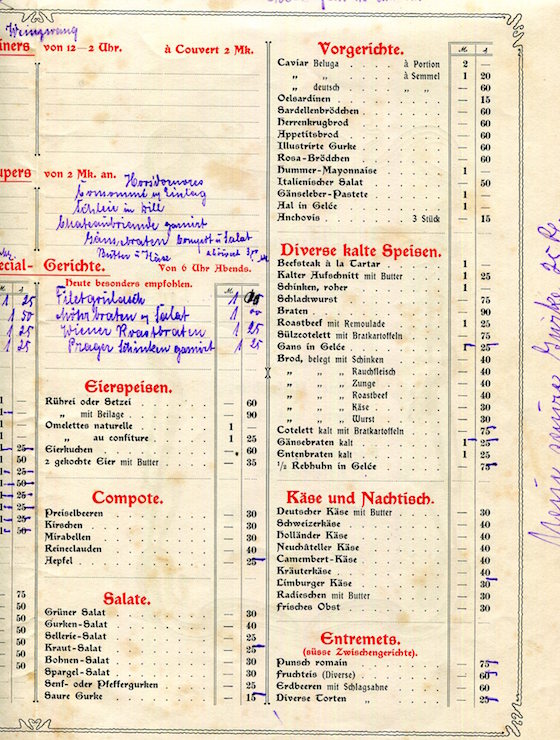 Weinzwang
iners von 12—2 Uhr. à Couvert 2 Mk.
upers von 2 Mk. an.
Schleie in Dill
Chateaubriande garniert
Gänsebraten Compott u Salat
Butter u Käse
ecial- Gerichte. Von 6 Uhr Abends.
Heute besonders empfohlen. M. ₰
1 25 Filetgoulasch 1
1 50 Mohrbraten u Salat 1
1 25 Wiener Roastbraten 1 25
1 25 Prager Schinken garniert 1 25
Eierspeisen.
Rührei oder Setzei — 60
„ mit Beilage — 90
Omelettes naturelle 1 —
„ au confiture 1 25
Eierkuchen — 60
2 gekochte Eier mit Butter — 35
Compote.
Preiselbeeren — 30
Kirschen — 30
Mirabellen — 30
Reineclauden — 40
Aepfel — 25
Salate.
Grüner Salat — 30
Gurken-Salat — 40
Sellerie-Salat — 25
Kraut-Salat — 25
Bohnen-Salat — 30
Spargel-Salat — 30
Senf- oder Pfeffergurken — 25
Saure Gurke — 15
Vorgerichte. M. ₰
Caviar Beluga à Portion 2 —
„ „ à Semmel 1 20
„ deutsch „ „ — 60
Oelsardinen — 15
Sardellenbrödchen — 60
Herrenkrugbrod — 60
Appetitsbrod — 60
Illustrirte Gurke — 60
Rosa-Brödchen — 60
Hummer-Mayonnaise 1 —
Italienischer Salat — 50
Gänseleber-Pastete 1 —
Aal in Gelée 1 —
Anchovis 3 Stück — 15
Diverse kalte Speisen.
Beefsteak à la Cartar 1 —
Kalter Aufschnitt mit Butter 1 25
Schinken, roher 1 —
Schlackwurst — 75
Braten — 90
Roastbeef mit Remoulade 1 25
Sülzcotelett mit Bratkartoffeln — 75
Gans in Gelée 1 25
Brod, belegt mit Schinken — 40
„ „ „ Rauchfleisch — 40
„ „ „ Zunge — 40
„ „ „ Roastbeef — 40
„ „ „ Käse — 30
„ „ „ Wurst — 30
Cotelett kalt mit Bratkartoffeln — 75
Gänsebraten kalt 1 25
Entenbraten kalt 1 25
1/2 Rebhuhn in Gelée — 75
Käse und Nachtisch.
Deutscher Käse mit Butter — 30
Schweizerkäse — 40
Holländer Käse — 40
Neuchâteller Käse — 40
Camembert-Käse — 40
Kräuterkäse — 40
Limburger Käse — 30
Radieschen mit Butter — 30
Frisches Obst — 30
Entremets.
(süsse Zwischengerichte).
Punsch romain — 75
Fruchteis (Diverse) — 60
Erdbeeren mit Schlagsahne — 60
Diverse Torten „ — 25